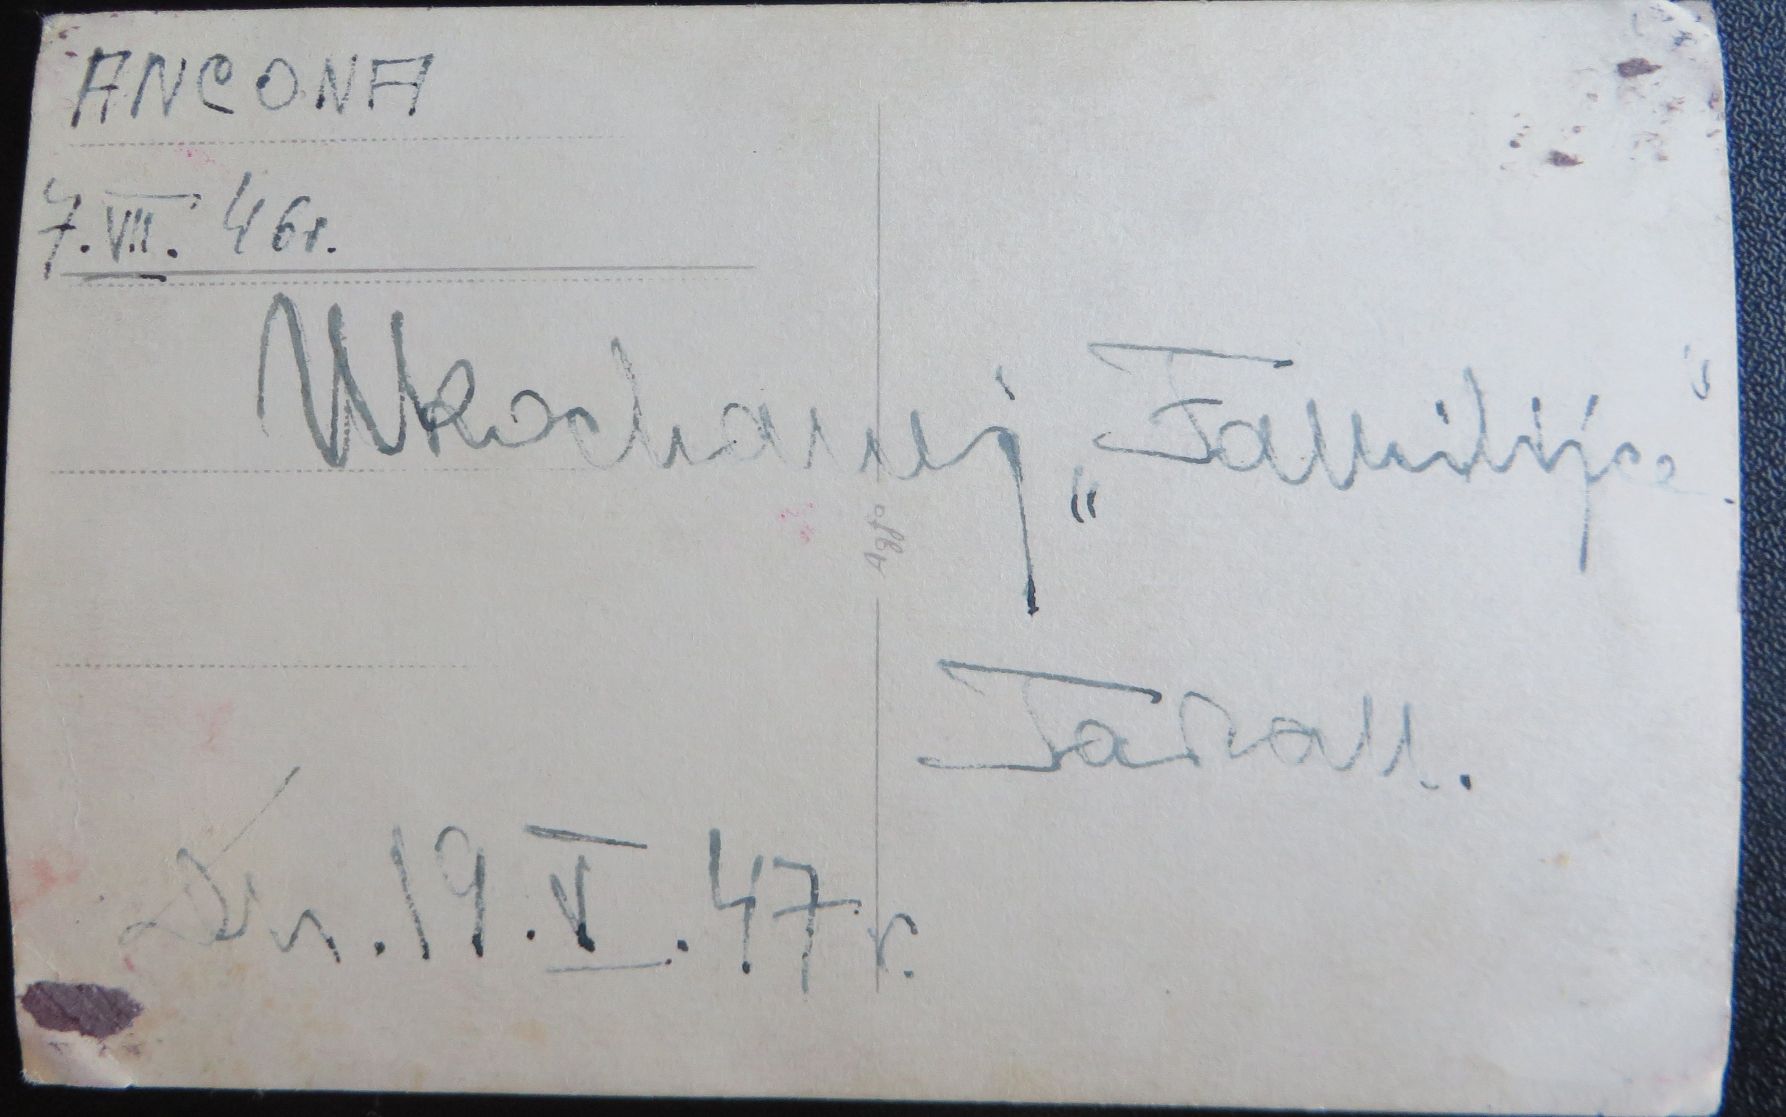 ANCONA
7.VII. 46r.
Ukochanej „Familijce”
Agfa
Dn. 19.V.47r.